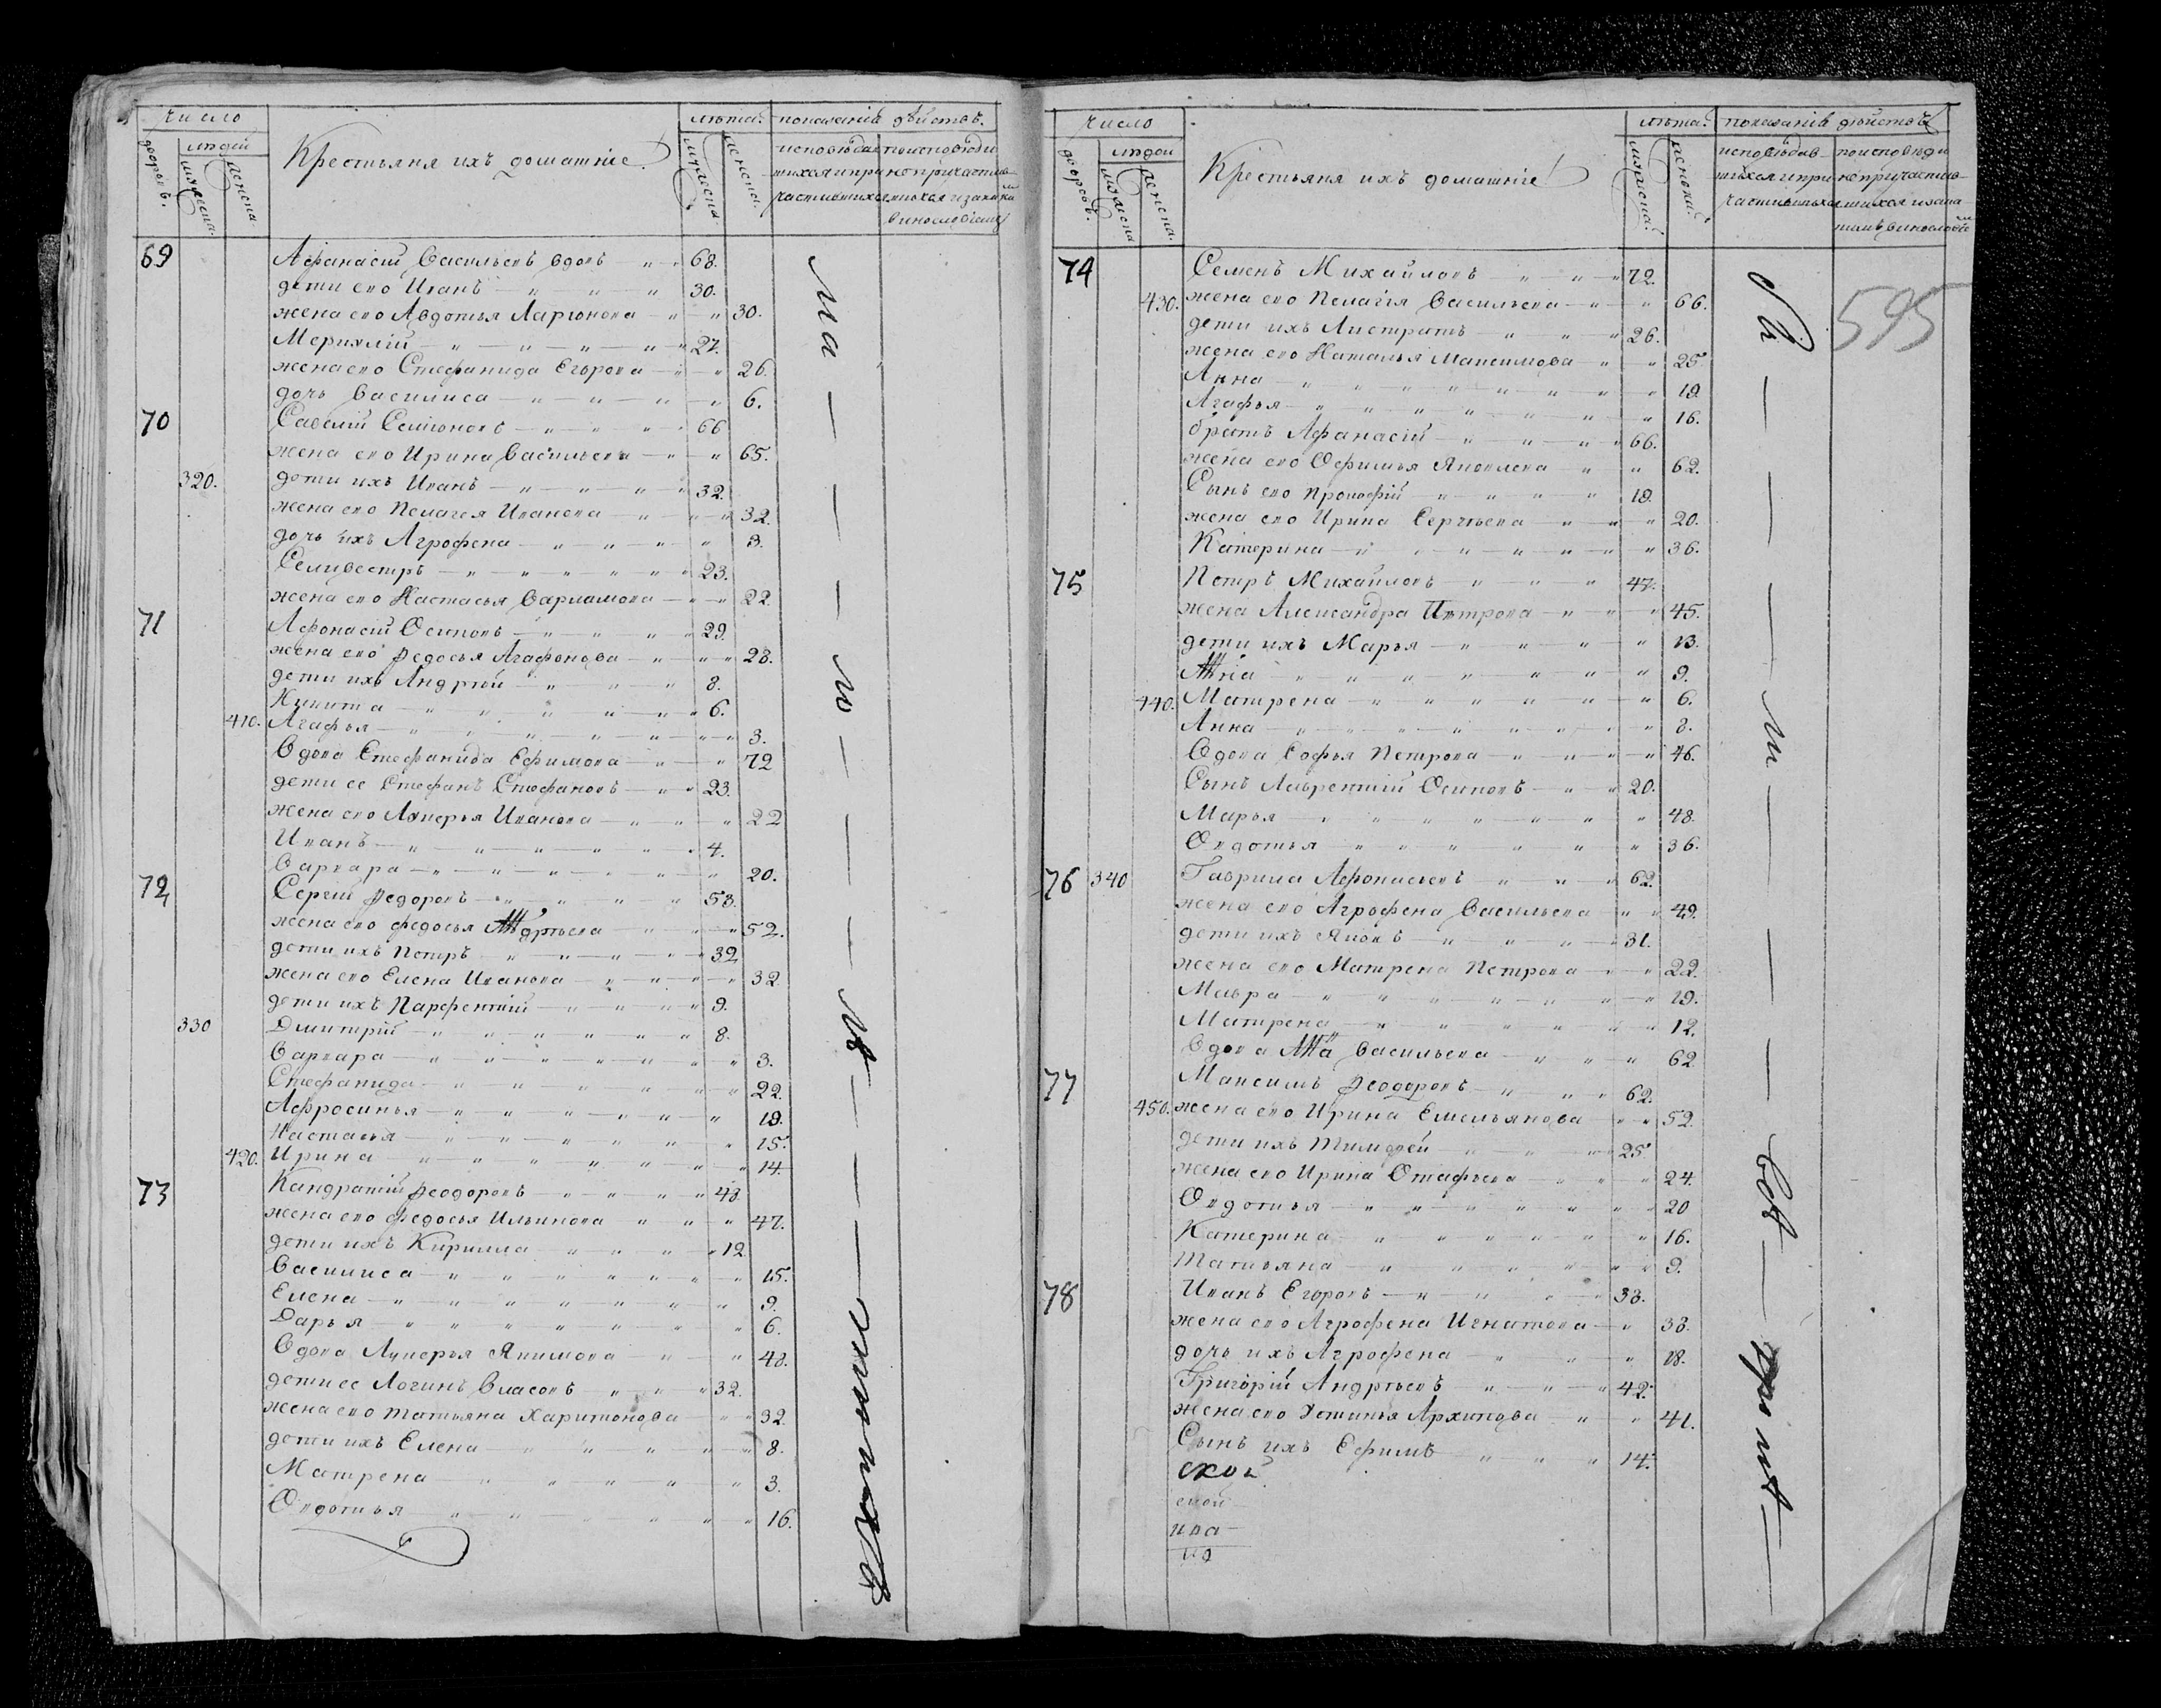 число
людей
дворовъ.
мужеска.
женска.
Крестьяня ихъ домашніе
лѣта.
мужеска.
женска.
показаніе дѣйствъ.
исповѣдав
шихся и при
частившихся
по исповѣди
не причастив
шихся и за какимъ
винословіемъ
69 Афанасій Васильевъ вдовъ 68.
дети ево Иванъ 30.
жена ево Авдотья Ларионова 30.
Меркилій 27.
жена ево Стефанида Егорова 26.
дочь Василиса 6.
70 Савелій Семіоновъ 66
жена ево Ирина Васильева 65.
320. дети ихъ Иванъ 32.
жена ево Пелагея Иванова 32.
дочь ихъ Агрофена 3.
Селивестръ 23.
жена ево Настасья Варламова 22.
71 Афонасій Осиповъ 29.
жена ево Федосья Агафонова 28.
дети ихъ Андрѣй 8.
Никита 6.
410. Агафья 3.
Вдова Стефанида Ефимова 72
дети ее Стефанъ Стефановъ 23.
жена ево Лукерья Иванова 22
Иванъ 4.
Варвара 20.
72 Сергій Федоровъ 53.
жена ево Федосья Андрѣева 52.
дети ихъ Петръ 32
жена ево Елена Иванова 32.
дети ихъ Парфентій 9.
330 Дмитрій 8.
Варвара 3.
Стефанида 22.
Афросинья 19.
Настасья 15.
420. Ирина 14.
73 Кандратій Феодоровъ 48
жена ево Федосья Ильинова 47.
дети ихъ Кирилла 12.
Василиса 15.
Елена 9.
Дарья 6.
Вдова Лукерья Якимова 48.
дети ее Логинъ Власовъ 32.
жена ево Татьяна Харитонова 32
дети ихъ Елена 8.
Матрена 3.
Овдотья 16.
число
людей
дворовъ.
мужеска
женска.
Крестьяня ихъ домашніе
лѣта.
мужеска.
женска.
показаніе дѣйствъ
исповѣдав
шихся и при
частившихся
по исповѣди
не причастив
шихся и за ка
кимъ винословіе
595
74 Семенъ Михайловъ 72.
430. жена ево Пелагія Васильева 66.
дети ихъ Листратъ 26.
жена ево Наталья Максимова 25
Анна 19
Агафья 16.
братъ Афанасій 66.
жена ево Офимья Яковлева 62.
Сынъ ево Прокофій 19.
жена ево Ирина Сергѣева 20.
Катерина 36.
75 Петръ Михайловъ 47.
жена Александра Петрова 45.
дети ихъ Марья 13.
9.
440. Матрена 6.
Анна 8.
Вдова Софья Петрова 46.
Сынъ Лаврентій Осиповъ 20.
Марья 48.
Овдотья 36.
76 340 Гаврила Афонасьевъ 62.
жена ево Агрофена Васильева 49.
дети ихъ Яковъ 31.
жена ево Матрена Петрова 22.
Мавра 19.
Матрена 12.
Вдова Васильева 62
77 Максимъ Феодоровъ 62.
450. жена ево Ирина Емельянова 52
дети ихъ Тимофей 25
жена ево Ирина Отафьева 24.
Овдотья 20
Катерина 16.
Татьяна 9.
78 Иванъ Егоровъ 38.
жена ево Агрофена Игнатова 38.
дочь ихъ Агрофена 18.
Григорій Андрѣевъ 42.
жена ево Устинья Архипова 41.
Сынъ ихъ Ефимъ 14.
ской
ской
ива
но